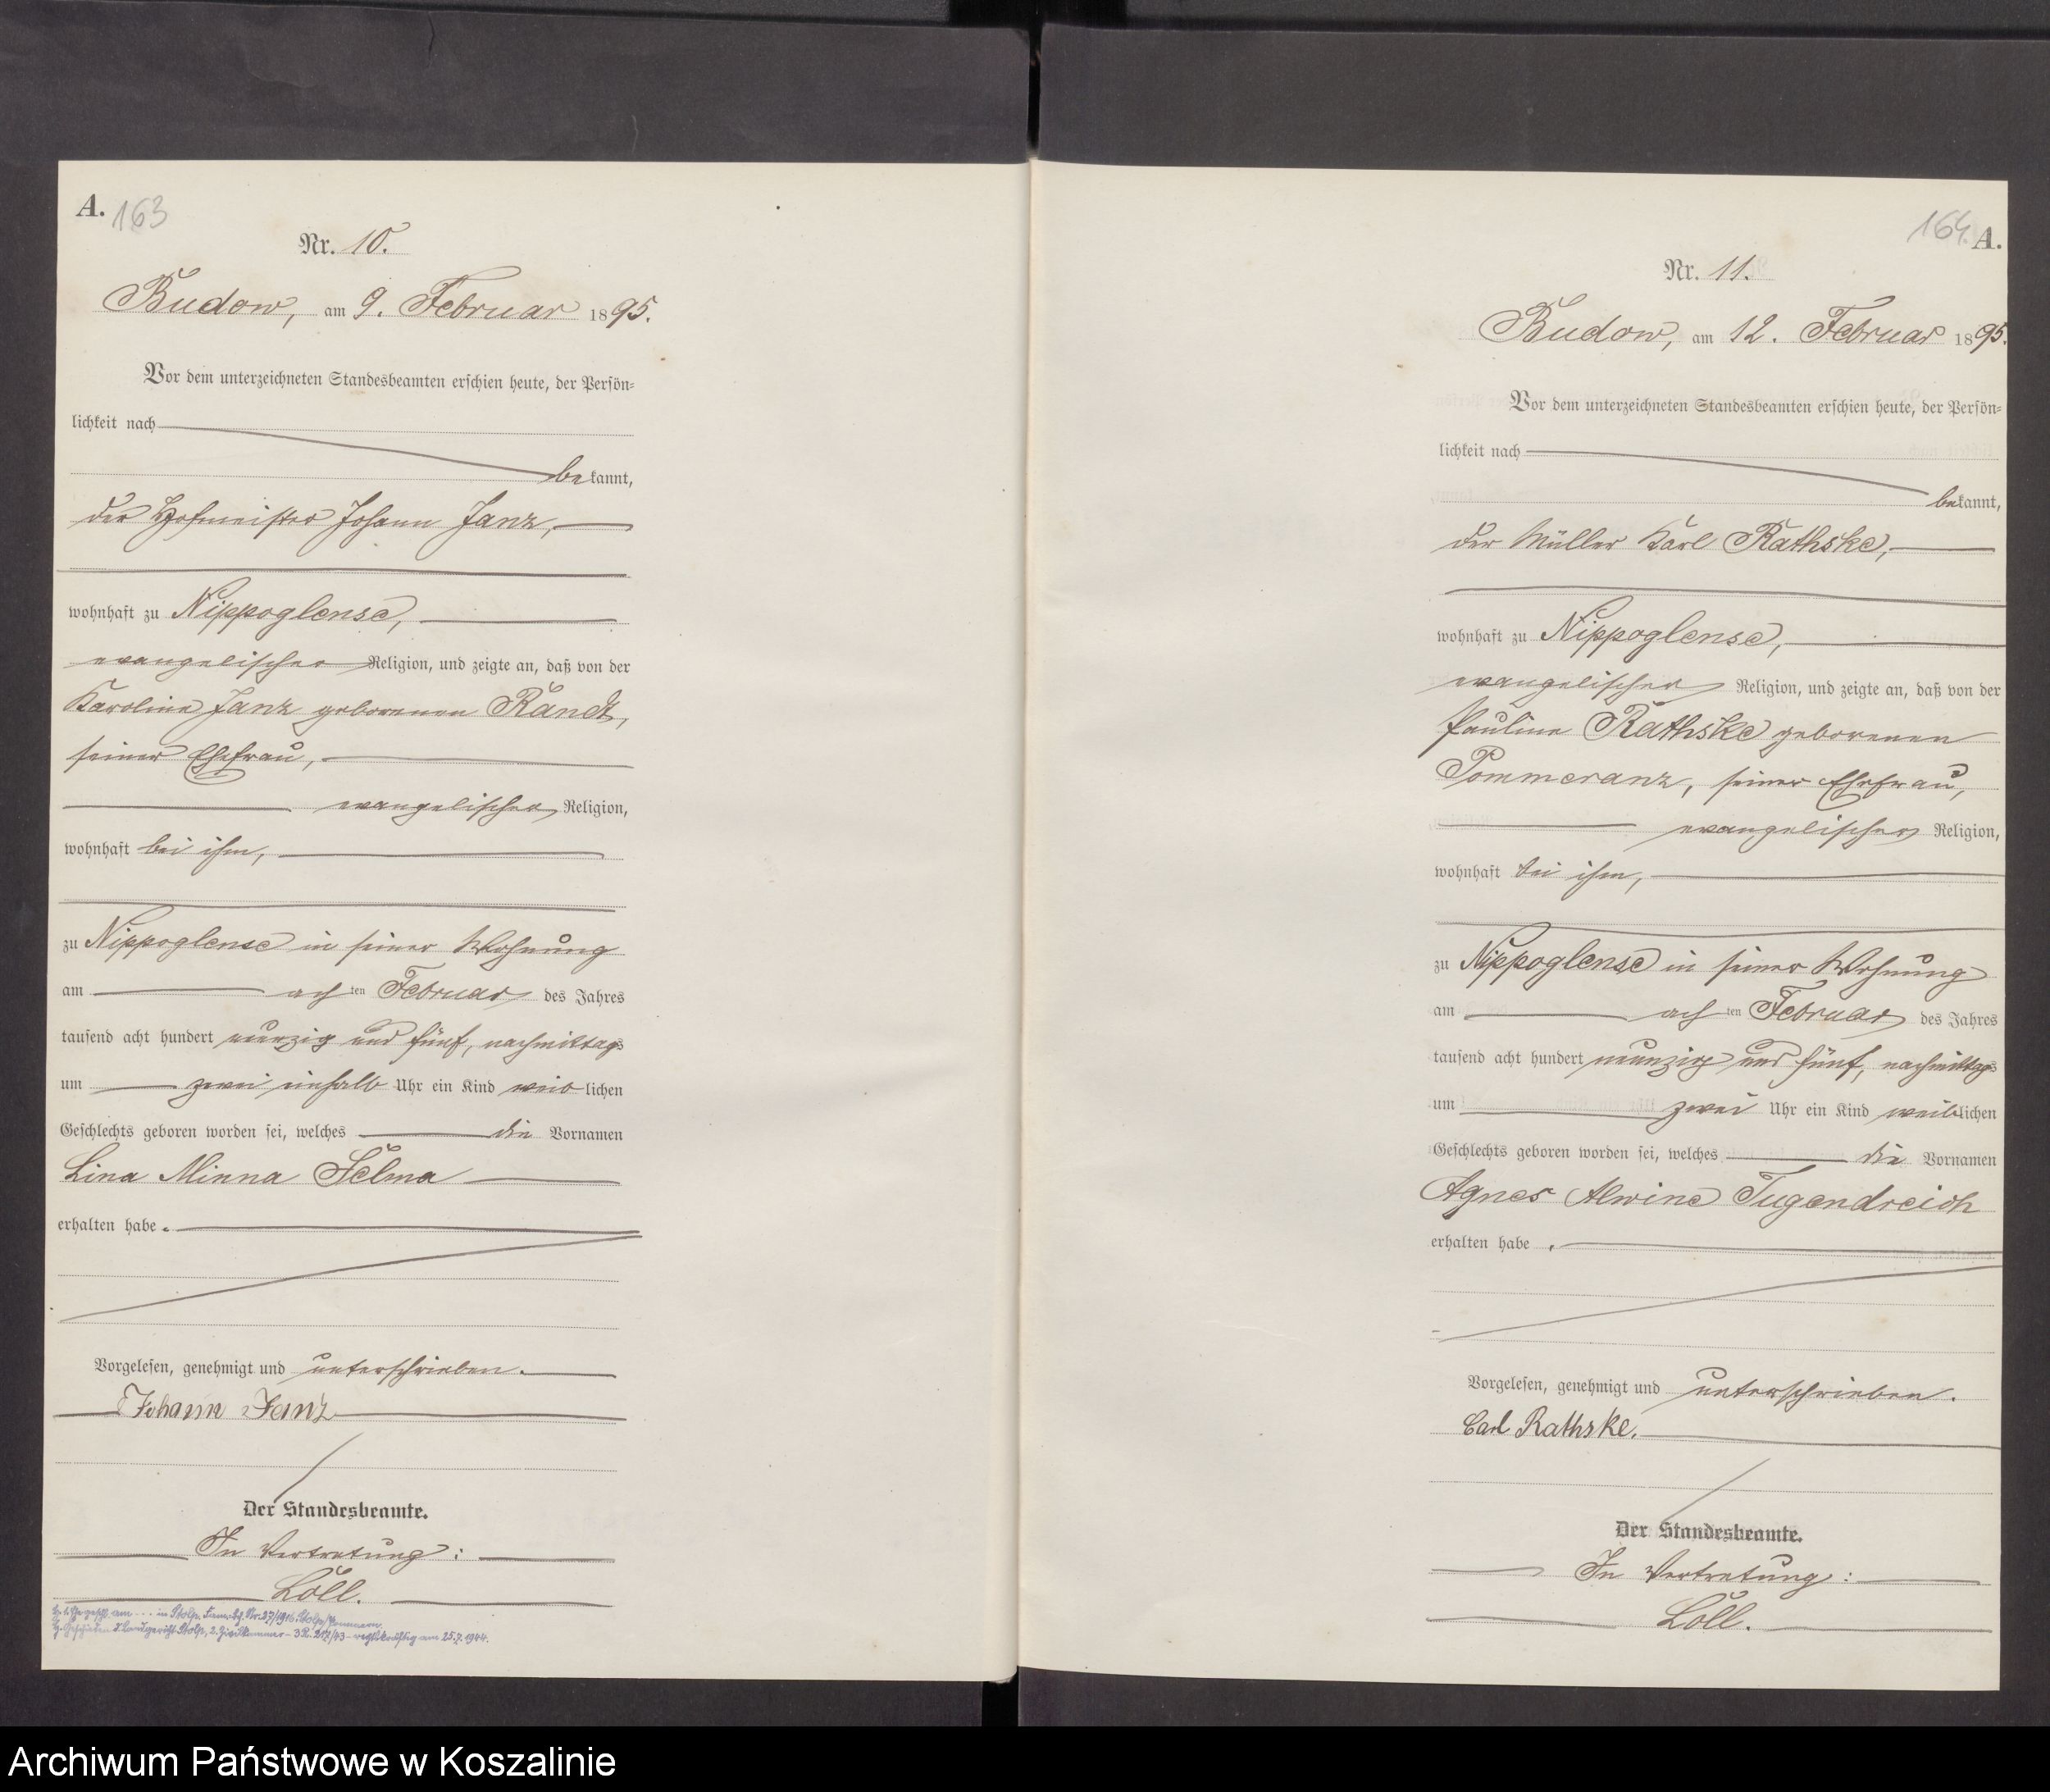 A. 163
Nr. 10.
Budow, am 9. Februar 1895.
Vor dem unterzeichneten Standesbeamten erschien heute, der Persön-
lichkeit nach
bekannt,
der Hofmeister Johann Janz,
wohnhaft zu Nippoglense,
evangelischer Religion, und zeigte an, daß von der
Karoline Janz geborenen Randt,
seiner Ehefrau,
evangelischer Religion,
wohnhaft bei ihm,
zu Nippoglense in seiner Wohnung
am achten Februar des Jahres
tausend acht hundert neunzig und fünf, nachmittags
um zwei einhalb Uhr ein Kind weiblichen
Geschlechts geboren worden sei, welches die Vornamen
Lina Minna Selma
erhalten habe.
Vorgelesen, genehmigt und unterschrieben.
Johann Janz
Der Standesbeamte.
In Vertretung:
Löll.
in Stolp. Nr. 27/1916. Stolp/Pommern
Landgericht Stolp, 2. Zivilkammer – 3 R. 217/43 – rechtskräftig am 25.7.1944.
164. A.
Nr. 11.
Budow, am 12. Februar 1895.
Vor dem unterzeichneten Standesbeamten erschien heute, der Persön-
lichkeit nach
bekannt,
der Müller Karl Rathske,
wohnhaft zu Nippoglense,
evangelischer Religion, und zeigte an, daß von der
Pauline Rathske geborenen
Pommeranz, seiner Ehefrau,
evangelischer Religion,
wohnhaft bei ihm,
zu Nippoglense in seiner Wohnung
am achten Februar des Jahres
tausend acht hundert neunzig und fünf, nachmittags
um zwei Uhr ein Kind weiblichen
Geschlechts geboren worden sei, welches die Vornamen
Agnes Alwine Tugendreich
erhalten habe.
Vorgelesen, genehmigt und unterschrieben.
Carl Rathske.
Der Standesbeamte.
In Vertretung:
Löll.
Archiwum Państwowe w Koszalinie